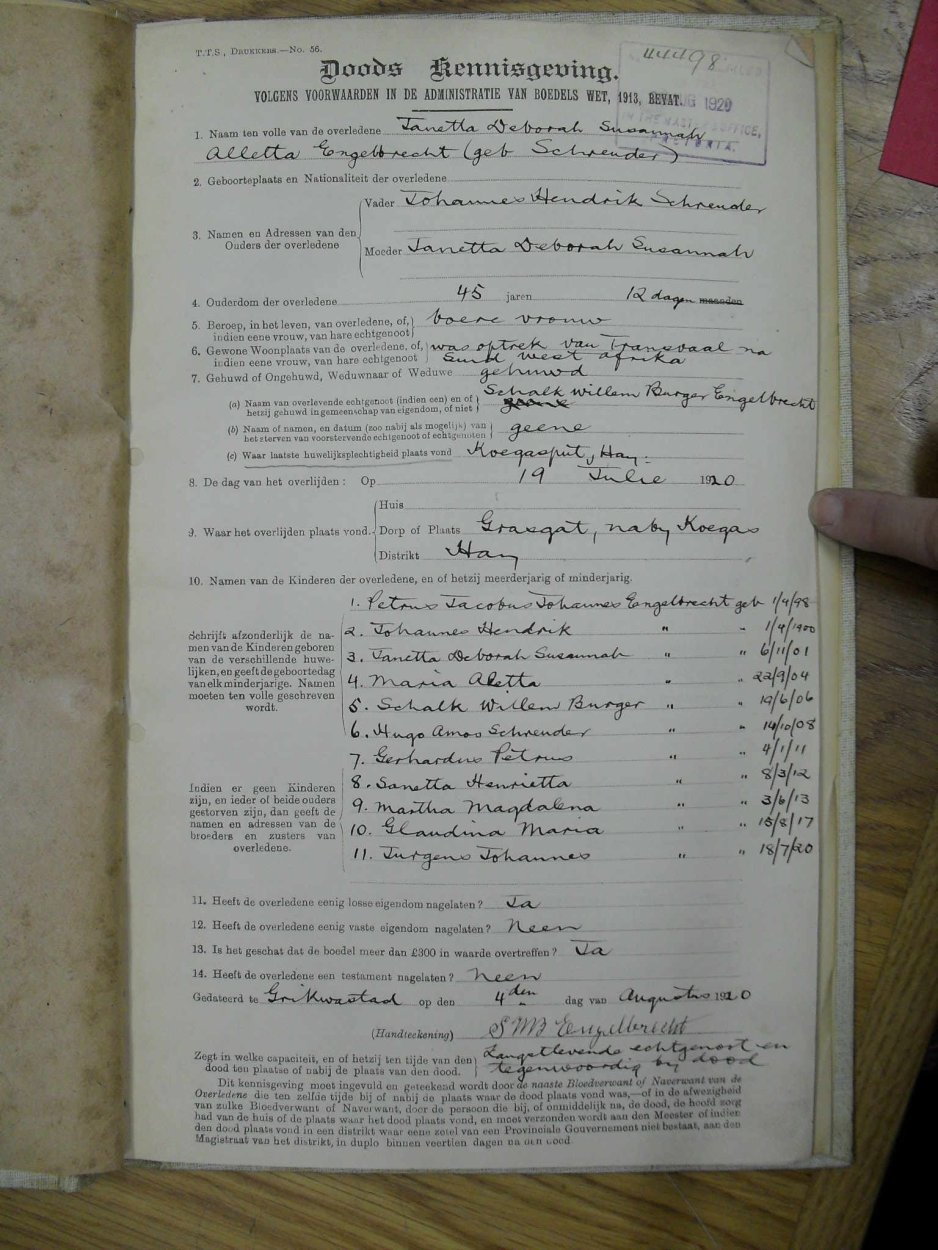 T.T.S., Drukkers.—No. 56.
44498
AUG 1920
IN THE MASTER'S OFFICE,
PRETORIA.
Doods Kennisgeving.
VOLGENS VOORWAARDEN IN DE ADMINISTRATIE VAN BOEDELS WET, 1913, BEVAT.
1. Naam ten volle van de overledene Janetta Deborah Susannah
Alletta Engelbrecht (geb Schreuder)
2. Geboorteplaats en Nationaliteit der overledene
3. Namen en Adressen van den Ouders der overledene
Vader Johannes Hendrik Schreuder
Moeder Janetta Deborah Susannah
4. Ouderdom der overledene 45 jaren 12 dagen maanden
5. Beroep, in het leven, van overledene, of, indien eene vrouw, van hare echtgenoot boere vrouw
6. Gewone Woonplaats van de overledene, of, indien eene vrouw, van hare echtgenoot was op trek van Transvaal na
Suid West Afrika
7. Gehuwd of Ongehuwd, Weduwnaar of Weduwe gehuwd
(a) Naam van overlevende echtgenoot (indien een) en of hetzij gehuwd in gemeenschap van eigendom, of niet Schalk Willem Burger Engelbrecht
geene
(b) Naam of namen, en datum (zoo nabij als mogelijk) van het sterven van voorstervende echtgenoot of echtgenoten geene
(c) Waar laatste huwelijksplechtigheid plaats vond Koegasput, Hay.
8. De dag van het overlijden: Op 19 Julie 1920
9. Waar het overlijden plaats vond.
Huis
Dorp of Plaats Grasgat, naby Koegas
Distrikt Hay
10. Namen van de Kinderen der overledene, en of hetzij meerderjarig of minderjarig.
Schrijft afzonderlijk de na-
men van de Kinderen geboren
van de verschillende huwe-
lijken, en geeft de geboortedag
van elk minderjarige. Namen
moeten ten volle geschreven
wordt.
1. Petrus Jacobus Johannes Engelbrecht geb 1/4/98
2. Johannes Hendrik " " 1/4/1900
3. Janetta Deborah Susannah " " 6/11/01
4. Maria Aletta " " 22/9/04
5. Schalk Willem Burger " " 19/6/06
6. Hugo Amos Schreuder " " 14/10/08
7. Gerhardus Petrus " " 4/1/11
8. Sanetta Henrietta " " 8/3/12
9. Martha Magdalena " " 3/6/13
10. Glaudina Maria " " 15/8/17
11. Jurgens Johannes " " 18/7/20
Indien er geen Kinderen
zijn, en ieder of beide ouders
gestorven zijn, dan geeft de
namen en adressen van de
broeders en zusters van
overledene.
11. Heeft de overledene eenig losse eigendom nagelaten? Ja
12. Heeft de overledene eenig vaste eigendom nagelaten? Neen
13. Is het geschat dat de boedel meer dan £300 in waarde overtreffen? Ja
14. Heeft de overledene een testament nagelaten? Neen
Gedateerd te Grikwastad op den 4den dag van Augustus 1920
(Handteekening) SWB Engelbrecht
Zegt in welke capaciteit, en of hetzij ten tijde van den dood ten plaatse of nabij de plaats van den dood.
Langstlevende echtgenoot en
tegenwoordig bij dood
Dit kennisgeving moet ingevuld en geteekend wordt door de naaste Bloedverwant of Naverwant van de
Overledene die ten zelfde tijde bij of nabij de plaats waar de dood plaats vond was,—of in de afwezigheid
van zulke Bloedverwant of Naverwant, door de persoon die bij, of onmiddelijk na, de dood, de hoofd zorg
had van de huis of de plaats waar het dood plaats vond, en moet verzonden wordt aan den Meester of indien
den dood plaats vond in een distrikt waar eene zetel van een Provinciale Gouvernement niet bestaat, aan den
Magistraat van het distrikt, in duplo binnen veertien dagen na den dood